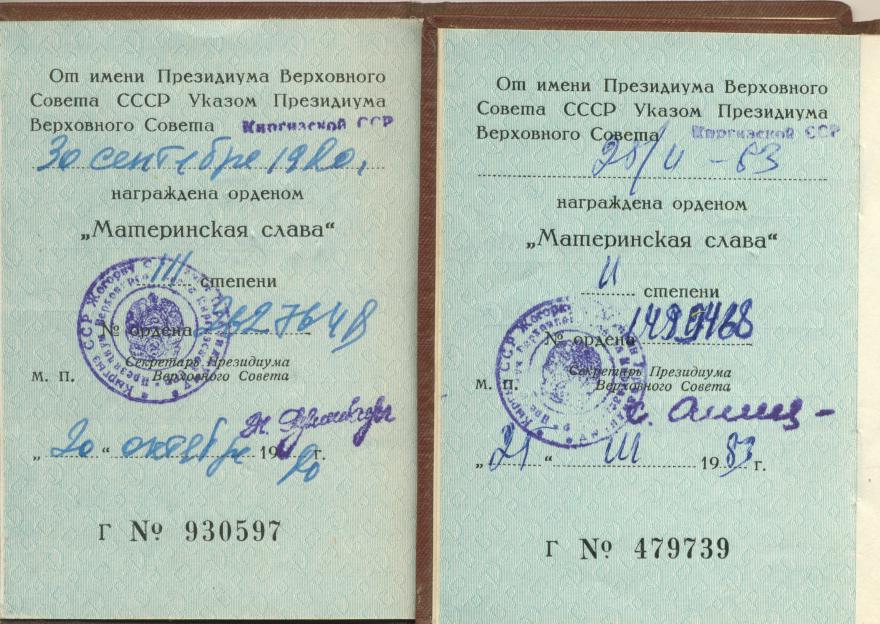 От имени Президиума Верховного
Совета СССР Указом Президиума
Верховного Совета Киргизской ССР
30 сентября 1980г
награждена орденом
„Материнская слава“
III степени
№ ордена
Секретарь Президиума
Верховного Совета
М. П.
„20“ октября 1980 г.
Г № 930597
От имени Президиума Верховного
Совета СССР Указом Президиума
Верховного Совета Киргизской ССР
83
награждена орденом
„Материнская слава“
II степени
№ ордена
Секретарь Президиума
Верховного Совета
М. П.
„21“ III 1983 г.
Г № 479739